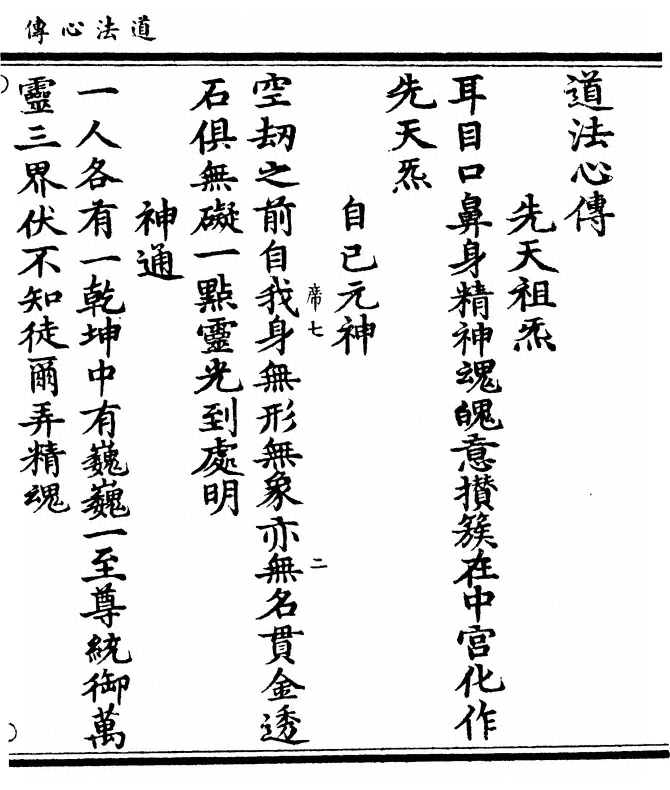 道法心傳
道法心傳
先天祖炁
耳目口鼻身精神魂魄意攅簇在中宮化作
先天炁
自己元神
席七
二
空刼之前自我身無形無象亦無名貫金透
石俱無礙一點靈光到處明
神通
一人各有一乾坤中有巍巍一至尊統御萬
靈三界伏不知徒爾弄精魂